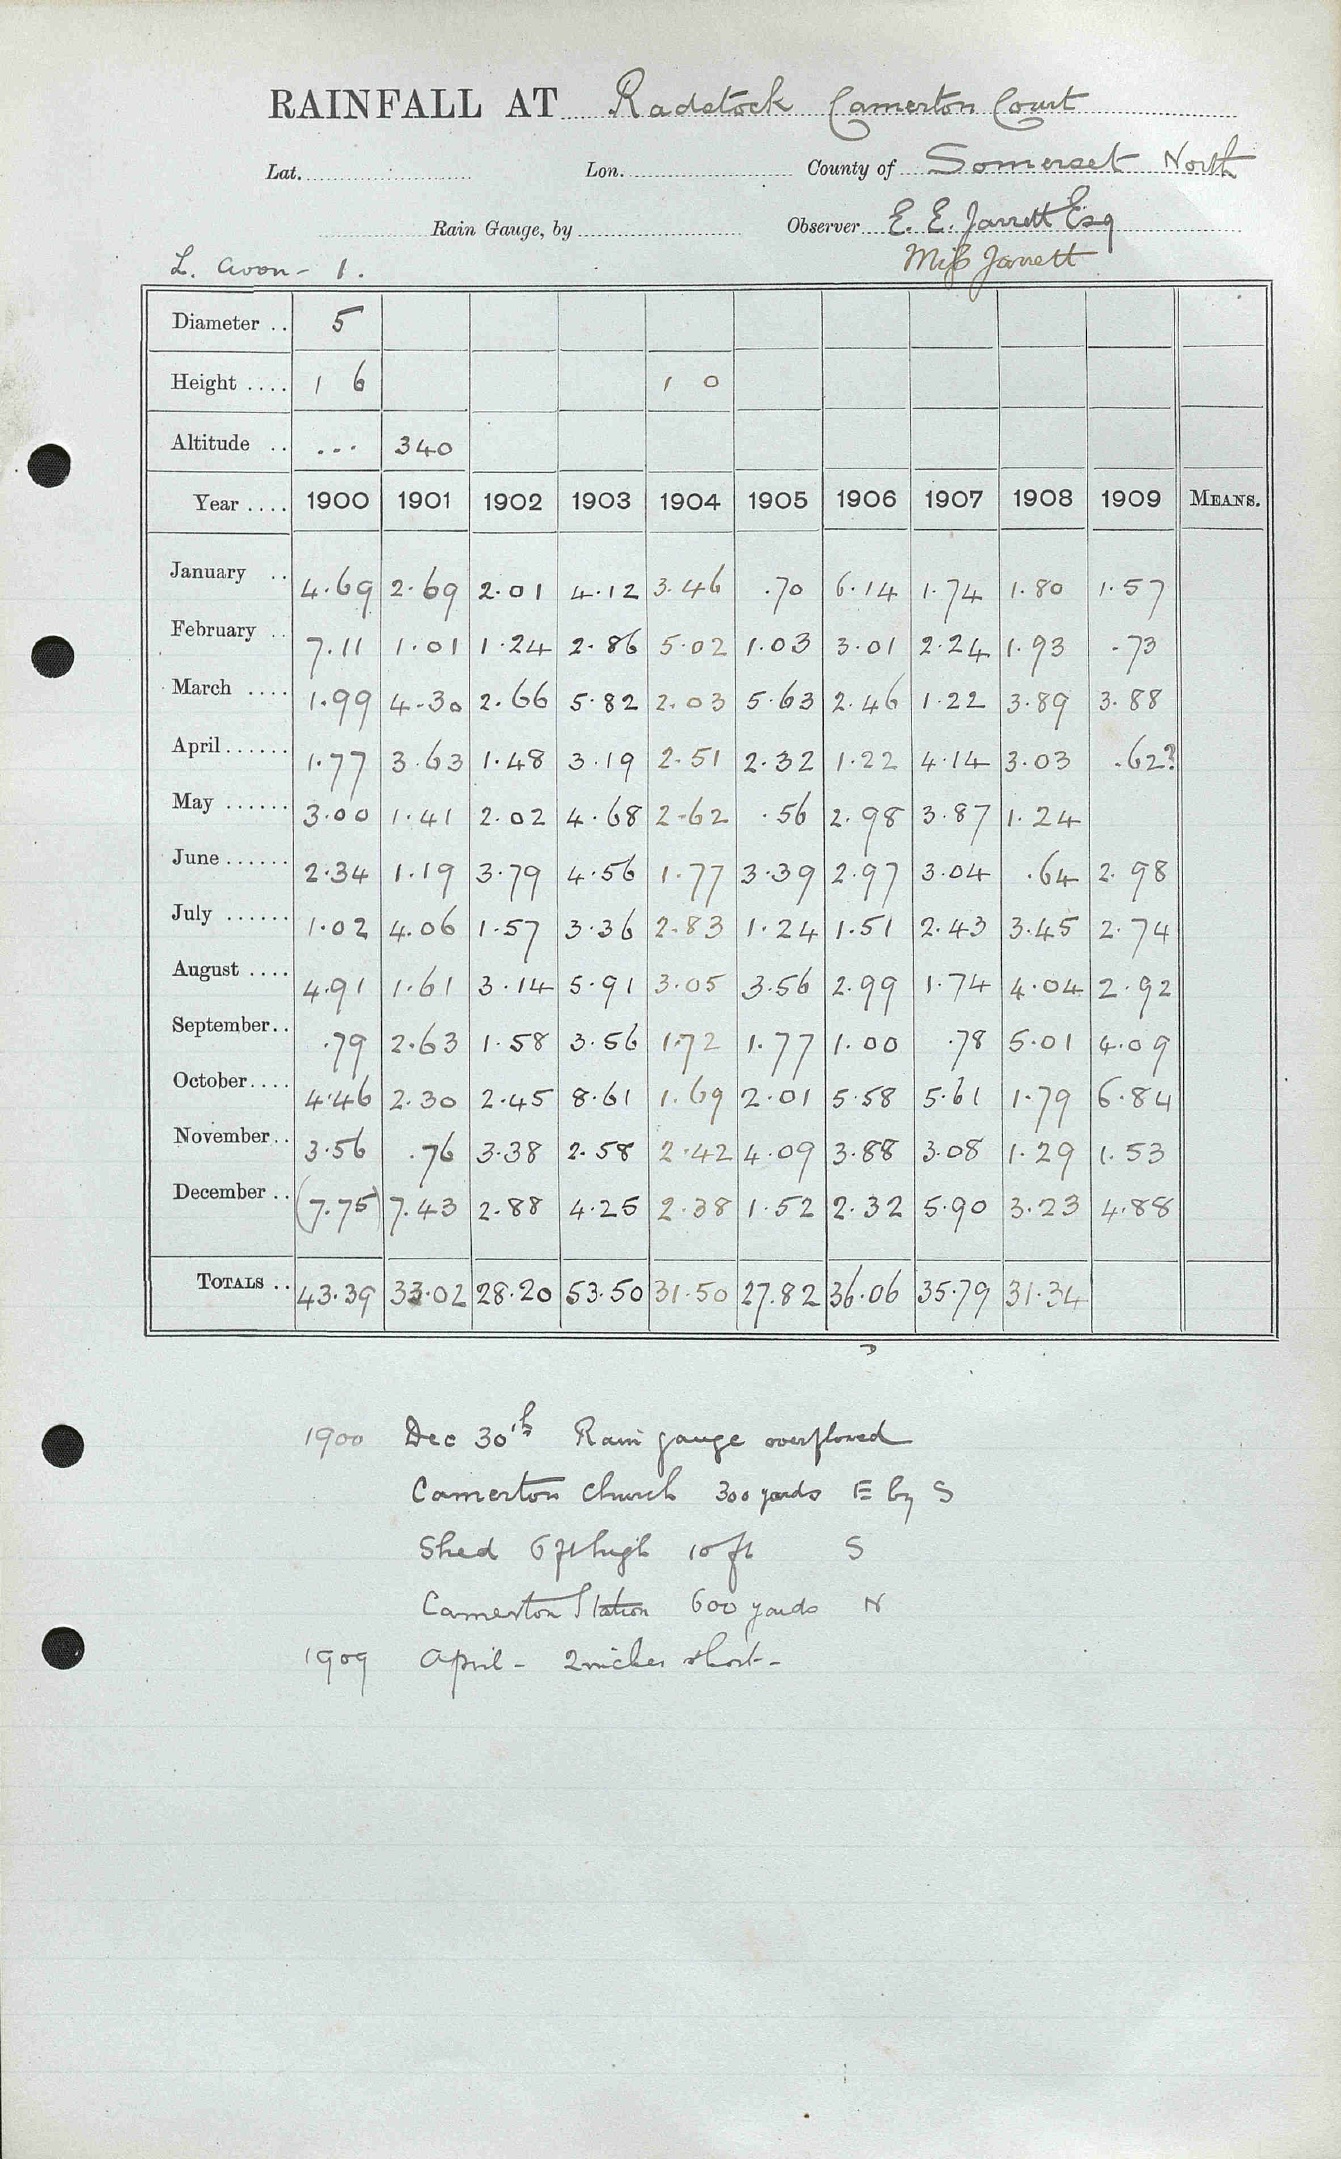 RAINFALL AT Radstock Camerton Court
Lat. Lon. County of Somerset North
Rain Gauge, by Observer E. E. Jarrett Esq
L. Avon - 1. Miss Jarrett
Diameter .. 5
Height .... 1 6 1 0
Altitude .. ... 340
Year .... 1900 1901 1902 1903 1904 1905 1906 1907 1908 1909 MEANS.
January .. 4.69 2.69 2.01 4.12 3.46 .70 6.14 1.74 1.80 1.57
February .. 7.11 1.01 1.24 2.86 5.02 1.03 3.01 2.24 1.93 .73
March .... 1.99 4.30 2.66 5.82 2.03 5.63 2.46 1.22 3.89 3.88
April...... 1.77 3.63 1.48 3.19 2.51 2.32 1.22 4.14 3.03 .62?
May ...... 3.00 1.41 2.02 4.68 2.62 .56 2.98 3.87 1.24
June...... 2.34 1.19 3.79 4.56 1.77 3.39 2.97 3.04 .64 2.98
July ...... 1.02 4.06 1.57 3.36 2.83 1.24 1.51 2.43 3.45 2.74
August .... 4.91 1.61 3.14 5.91 3.05 3.56 2.99 1.74 4.04 2.92
September.. .79 2.63 1.58 3.56 1.72 1.77 1.00 .78 5.01 4.09
October.... 4.46 2.30 2.45 8.61 1.69 2.01 5.58 5.61 1.79 6.84
November.. 3.56 .76 3.38 2.58 2.42 4.09 3.88 3.08 1.29 1.53
December .. (7.75) 7.43 2.88 4.25 2.38 1.52 2.32 5.90 3.23 4.88
TOTALS .. 43.39 33.02 28.20 53.50 31.50 27.82 36.06 35.79 31.34
1900 Dec 30th Rain gauge overflowed
Camerton Church 300 yards E by S
Shed 6 ft high 10 ft S
Camerton Station 600 yards N
1909 April - 2 inches short -